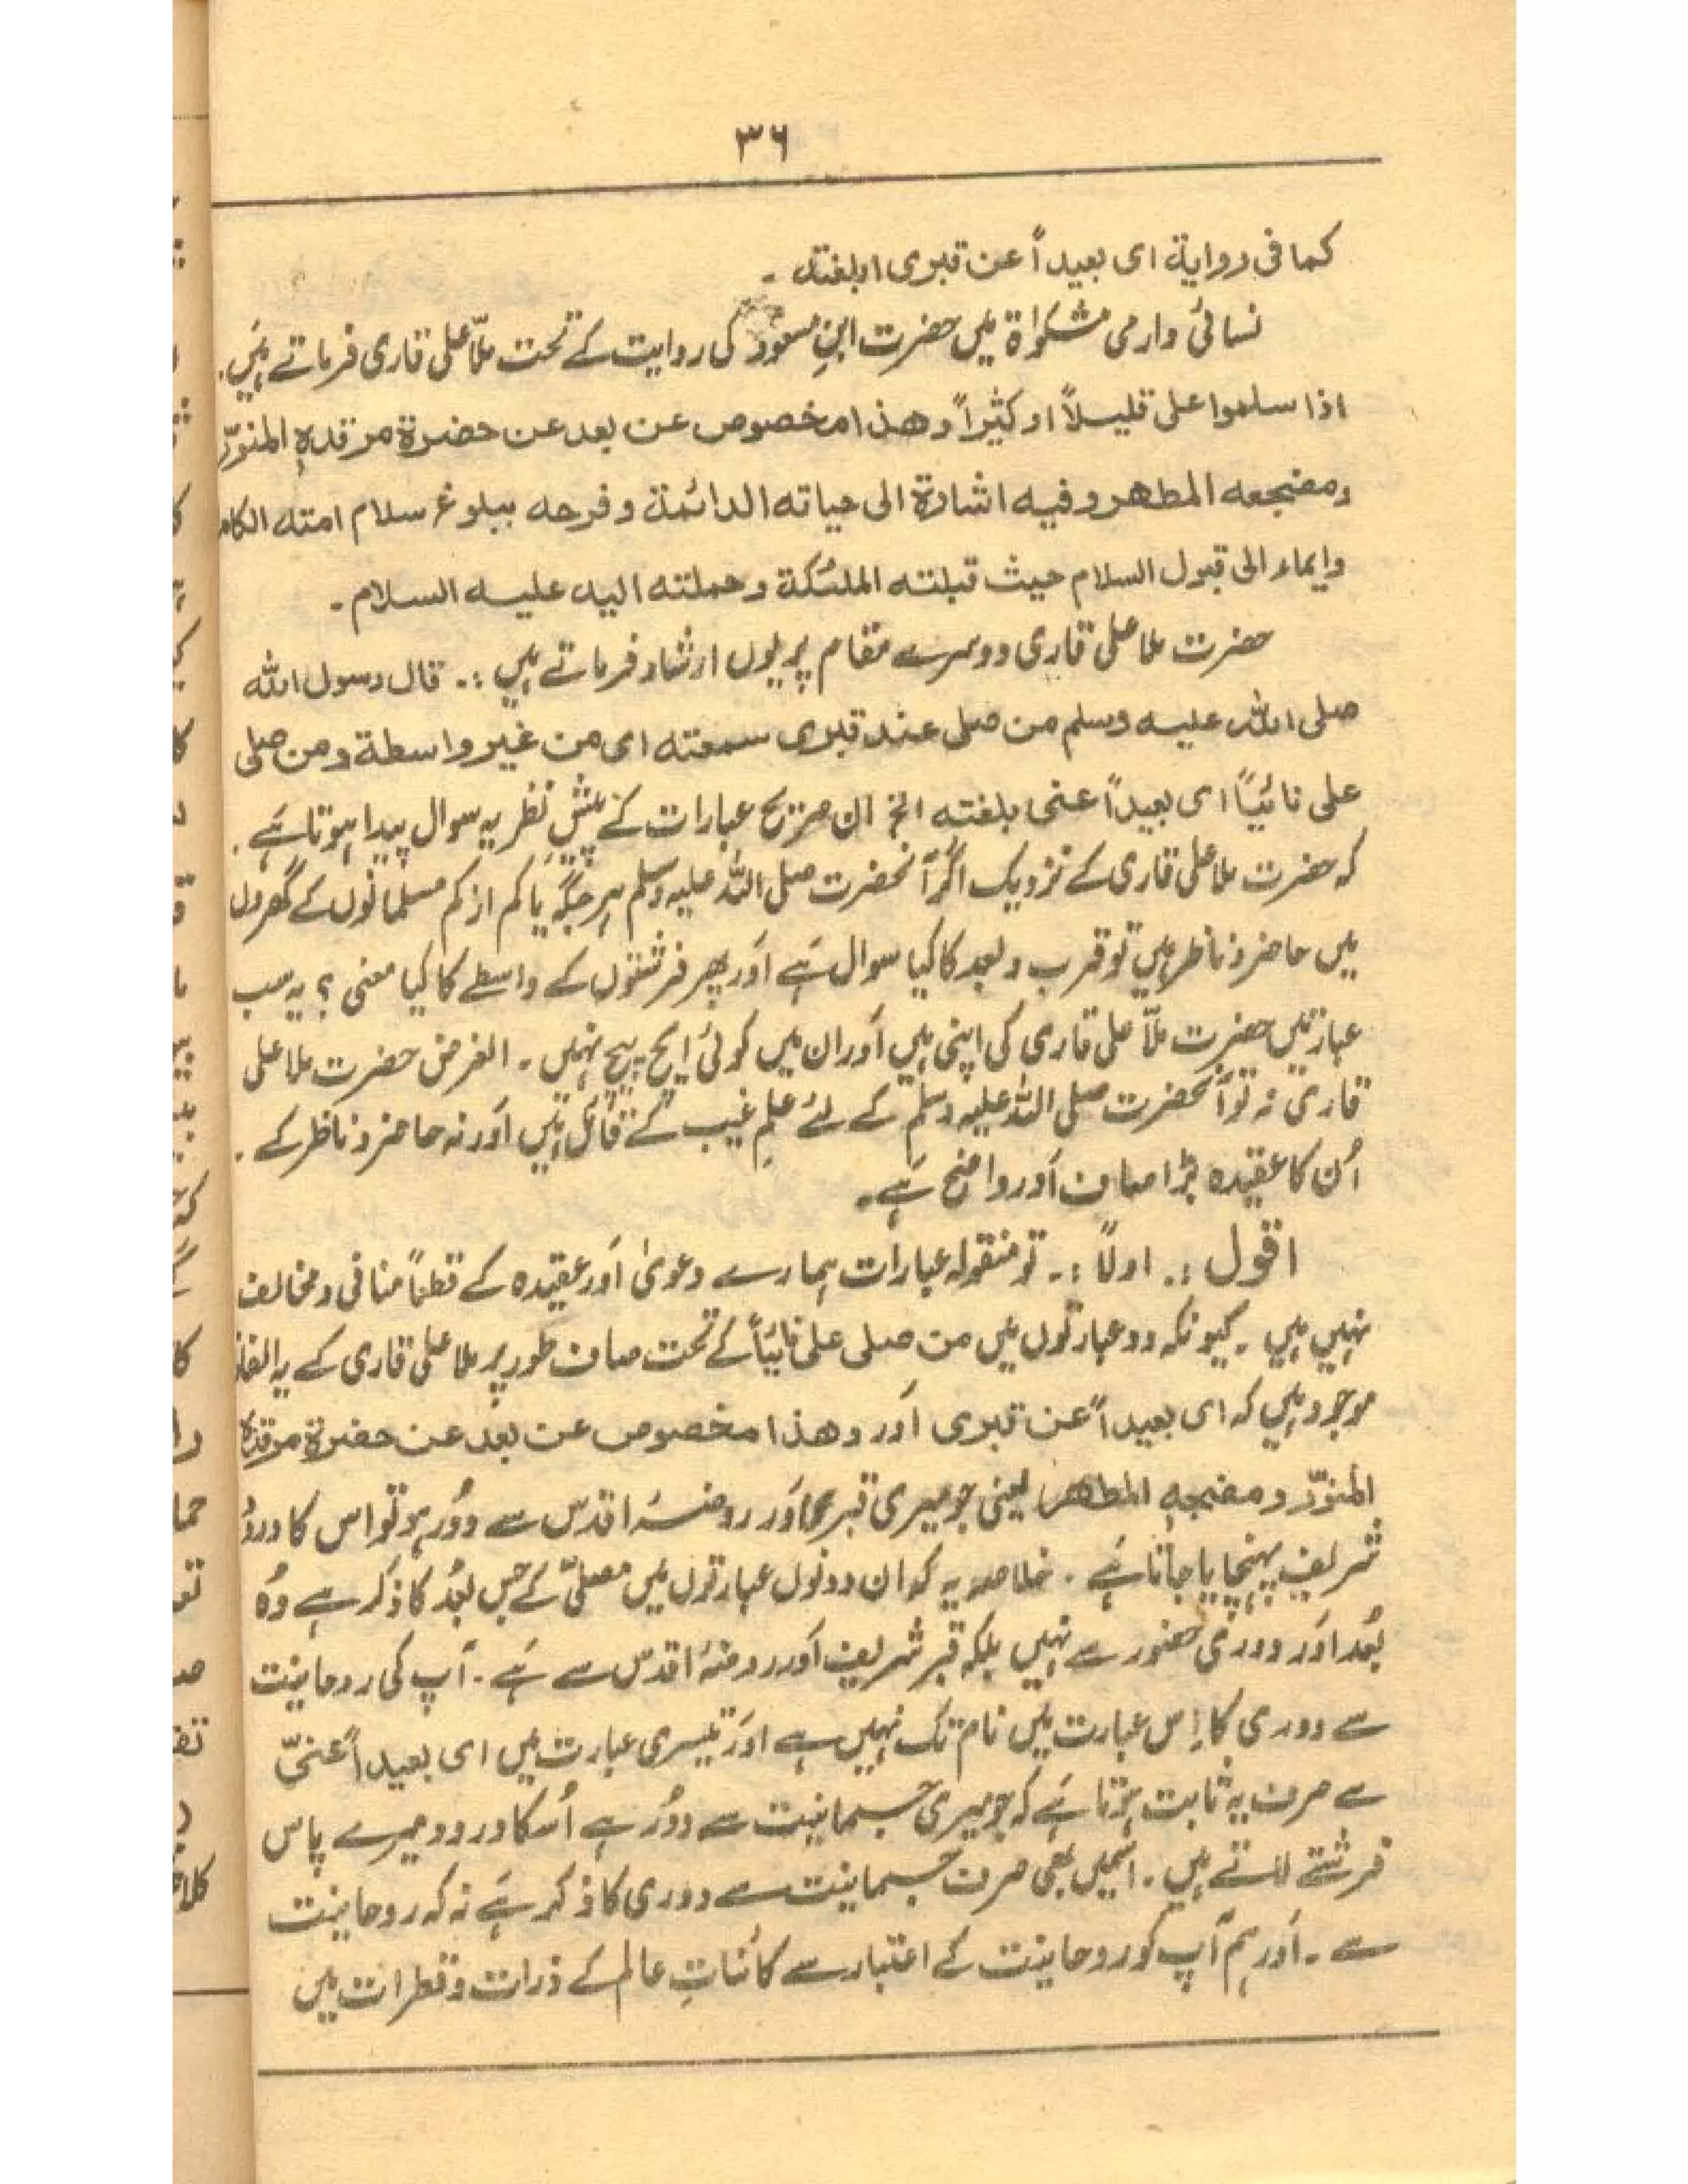 ۳۶
کما فی روایة ای بعیداً عن قبری ابلغته ۔
نسائی دارمی مشکوٰة میں حضرت ابنِ مسعود کی روایت کے تحت ملّا علی قاری فرماتے ہیں.
اذا سلموا علی قلیلاً او کثیراً وهذا مخصوص عن بعد عن حضرة مرقدهِ المنوّر
ومضجعه المطهر وفیه اشارة الی حیاته الدائمة وفرحه ببلوغ سلام امته الکام
وایماء الی قبول السلام حیث قبلته الملئکة وحملته الیه علیه السلام ۔
حضرت ملا علی قاری دوسرے مقام پر یوں ارشاد فرماتے ہیں :. قال رسول الله
صلی الله علیه وسلم من صلی عند قبری سمعته ای من غیر واسطة ومن صلی
علی نائیاً ای بعیداً عنی ابلغته الخ ان صریح عبارات کے پیشِ نظر یہ سوال پیدا ہوتا ہے .
کہ حضرت ملا علی قاری کے نزدیک اگر آنحضرت صلی اللہ علیہ وسلم ہر جگہ یا کم از کم مسلمانوں کے گھروں
میں حاضر و ناظر ہیں تو قرب و بعد کا کیا سوال ہے اور پھر فرشتوں کے واسطے کا کیا معنی ؟ یہ سب
عبارتیں حضرت ملّا علی قاری کی اپنی ہیں اور ان میں کوئی ایچ پیچ نہیں ۔ الغرض حضرت ملا علی
قاری نہ تو آنحضرت صلی اللہ علیہ وسلم کے لئے علمِ غیب کے قائل ہیں اور نہ حاضر و ناظر کے .
اُن کا عقیدہ بڑا صاف اور واضح ہے ۔
اقول :. اولاً :۔ تو منقولہ عبارات ہمارے دعویٰ اور عقیدہ کے قطعاً منافی و مخالف
نہیں ہیں ۔ کیونکہ دو عبارتوں میں من صلی علی نائیاً کے تحت صاف طور پر ملا علی قاری کے یہ الفاظ
موجود ہیں کہ ای بعیداً عن قبری اور وهذا مخصوص عن بعد عن حضرة مرقدہ
المنوّر ومضجعهِ المطهر یعنی جو میری قبر اور روضۂ اقدس سے دور ہو تو اس کا درود
شریف پہنچایا جاتا ہے . خلاصہ یہ کہ ان دونوں عبارتوں میں مصلّی کے جس بُعد کا ذکر ہے وُہ
بُعد اور دوری حضور سے نہیں بلکہ قبر شریف اور روضۂ اقدس سے ہے . آپ کی روحانیت
سے دوری کا اِس عبارت میں نام تک نہیں ہے اور تیسری عبارت میں ای بعیداً عنیّ
سے صرف یہ ثابت ہوتا ہے کہ جو میری جسمانیت سے دُور ہے اُسکا درود میرے پاس
فرشتے لاتے ہیں . اسمیں بھی صرف جسمانیت سے دوری کا ذکر ہے نہ کہ روحانیت
سے ۔ اور ہم آپ کو روحانیت کے اعتبار سے کائناتِ عالم کے ذرات و قطرات میں